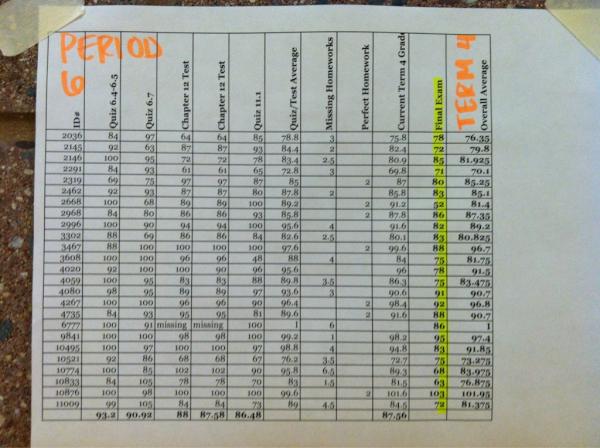 PERIOD 6 TERM 4
ID# Quiz 6.4-6.5 Quiz 6.7 Chapter 12 Test Chapter 12 Test Quiz 11.1 Quiz/Test Average Missing Homeworks Perfect Homework Current Term 4 Grade Final Exam Overall Average
2036 84 97 64 64 85 78.8 3 75.8 78 76.35
2145 92 63 87 87 93 84.4 2 82.4 72 79.8
2146 100 95 72 72 78 83.4 2.5 80.9 85 81.925
2291 84 93 61 61 65 72.8 3 69.8 71 70.1
2319 69 75 97 97 87 85 2 87 80 85.25
2462 92 93 87 87 80 87.8 2 85.8 83 85.1
2668 100 68 89 89 100 89.2 2 91.2 52 81.4
2968 84 80 86 86 93 85.8 2 87.8 86 87.35
2996 100 90 94 94 100 95.6 4 91.6 82 89.2
3302 88 69 86 86 84 82.6 2.5 80.1 83 80.825
3467 88 100 100 100 100 97.6 2 99.6 88 96.7
3608 100 100 96 96 48 88 4 84 75 81.75
4020 92 100 100 90 96 95.6 96 78 91.5
4059 100 95 83 83 88 89.8 3.5 86.3 75 83.475
4080 98 95 89 89 97 93.6 3 90.6 91 90.7
4267 100 100 96 96 90 96.4 2 98.4 92 96.8
4735 84 93 95 95 81 89.6 2 91.6 88 90.7
6777 100 91 missing missing 100 1 6 86 1
9841 100 100 98 98 100 99.2 1 98.2 95 97.4
10495 100 97 100 97 100 98.8 4 94.8 83 91.85
10521 92 86 68 68 67 76.2 3.5 72.7 75 73.275
10774 100 85 102 102 90 95.8 6.5 89.3 68 83.975
10833 84 105 78 78 70 83 1.5 81.5 63 76.875
10876 100 98 100 100 100 99.6 2 101.6 103 101.95
11009 99 105 84 84 73 89 4.5 84.5 72 81.375
93.2 90.92 88 87.58 86.48 87.56